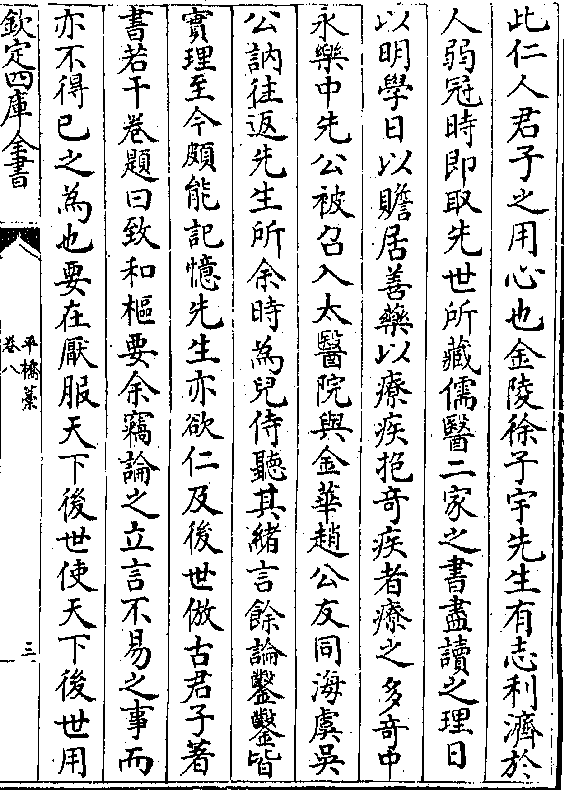 此仁人君子之用心也金陵徐子宇先生有志利濟於
人弱冠時即取先世所藏儒醫二家之書盡讀之理日
以明學日以贍居善藥以療疾抱奇疾者療之多奇中
永樂中先公被召入太醫院與金華趙公友同海虞吳
公訥往返先生所余時為兒侍聽其緒言餘論鑿鑿皆
實理至今頗能記憶先生亦欲仁及後世倣古君子著
書若干卷題曰致和樞要余竊論之立言不易之事而
亦不得已之為也要在厭服天下後世使天下後世用
欽定四庫全書
平橋藁
卷八
三